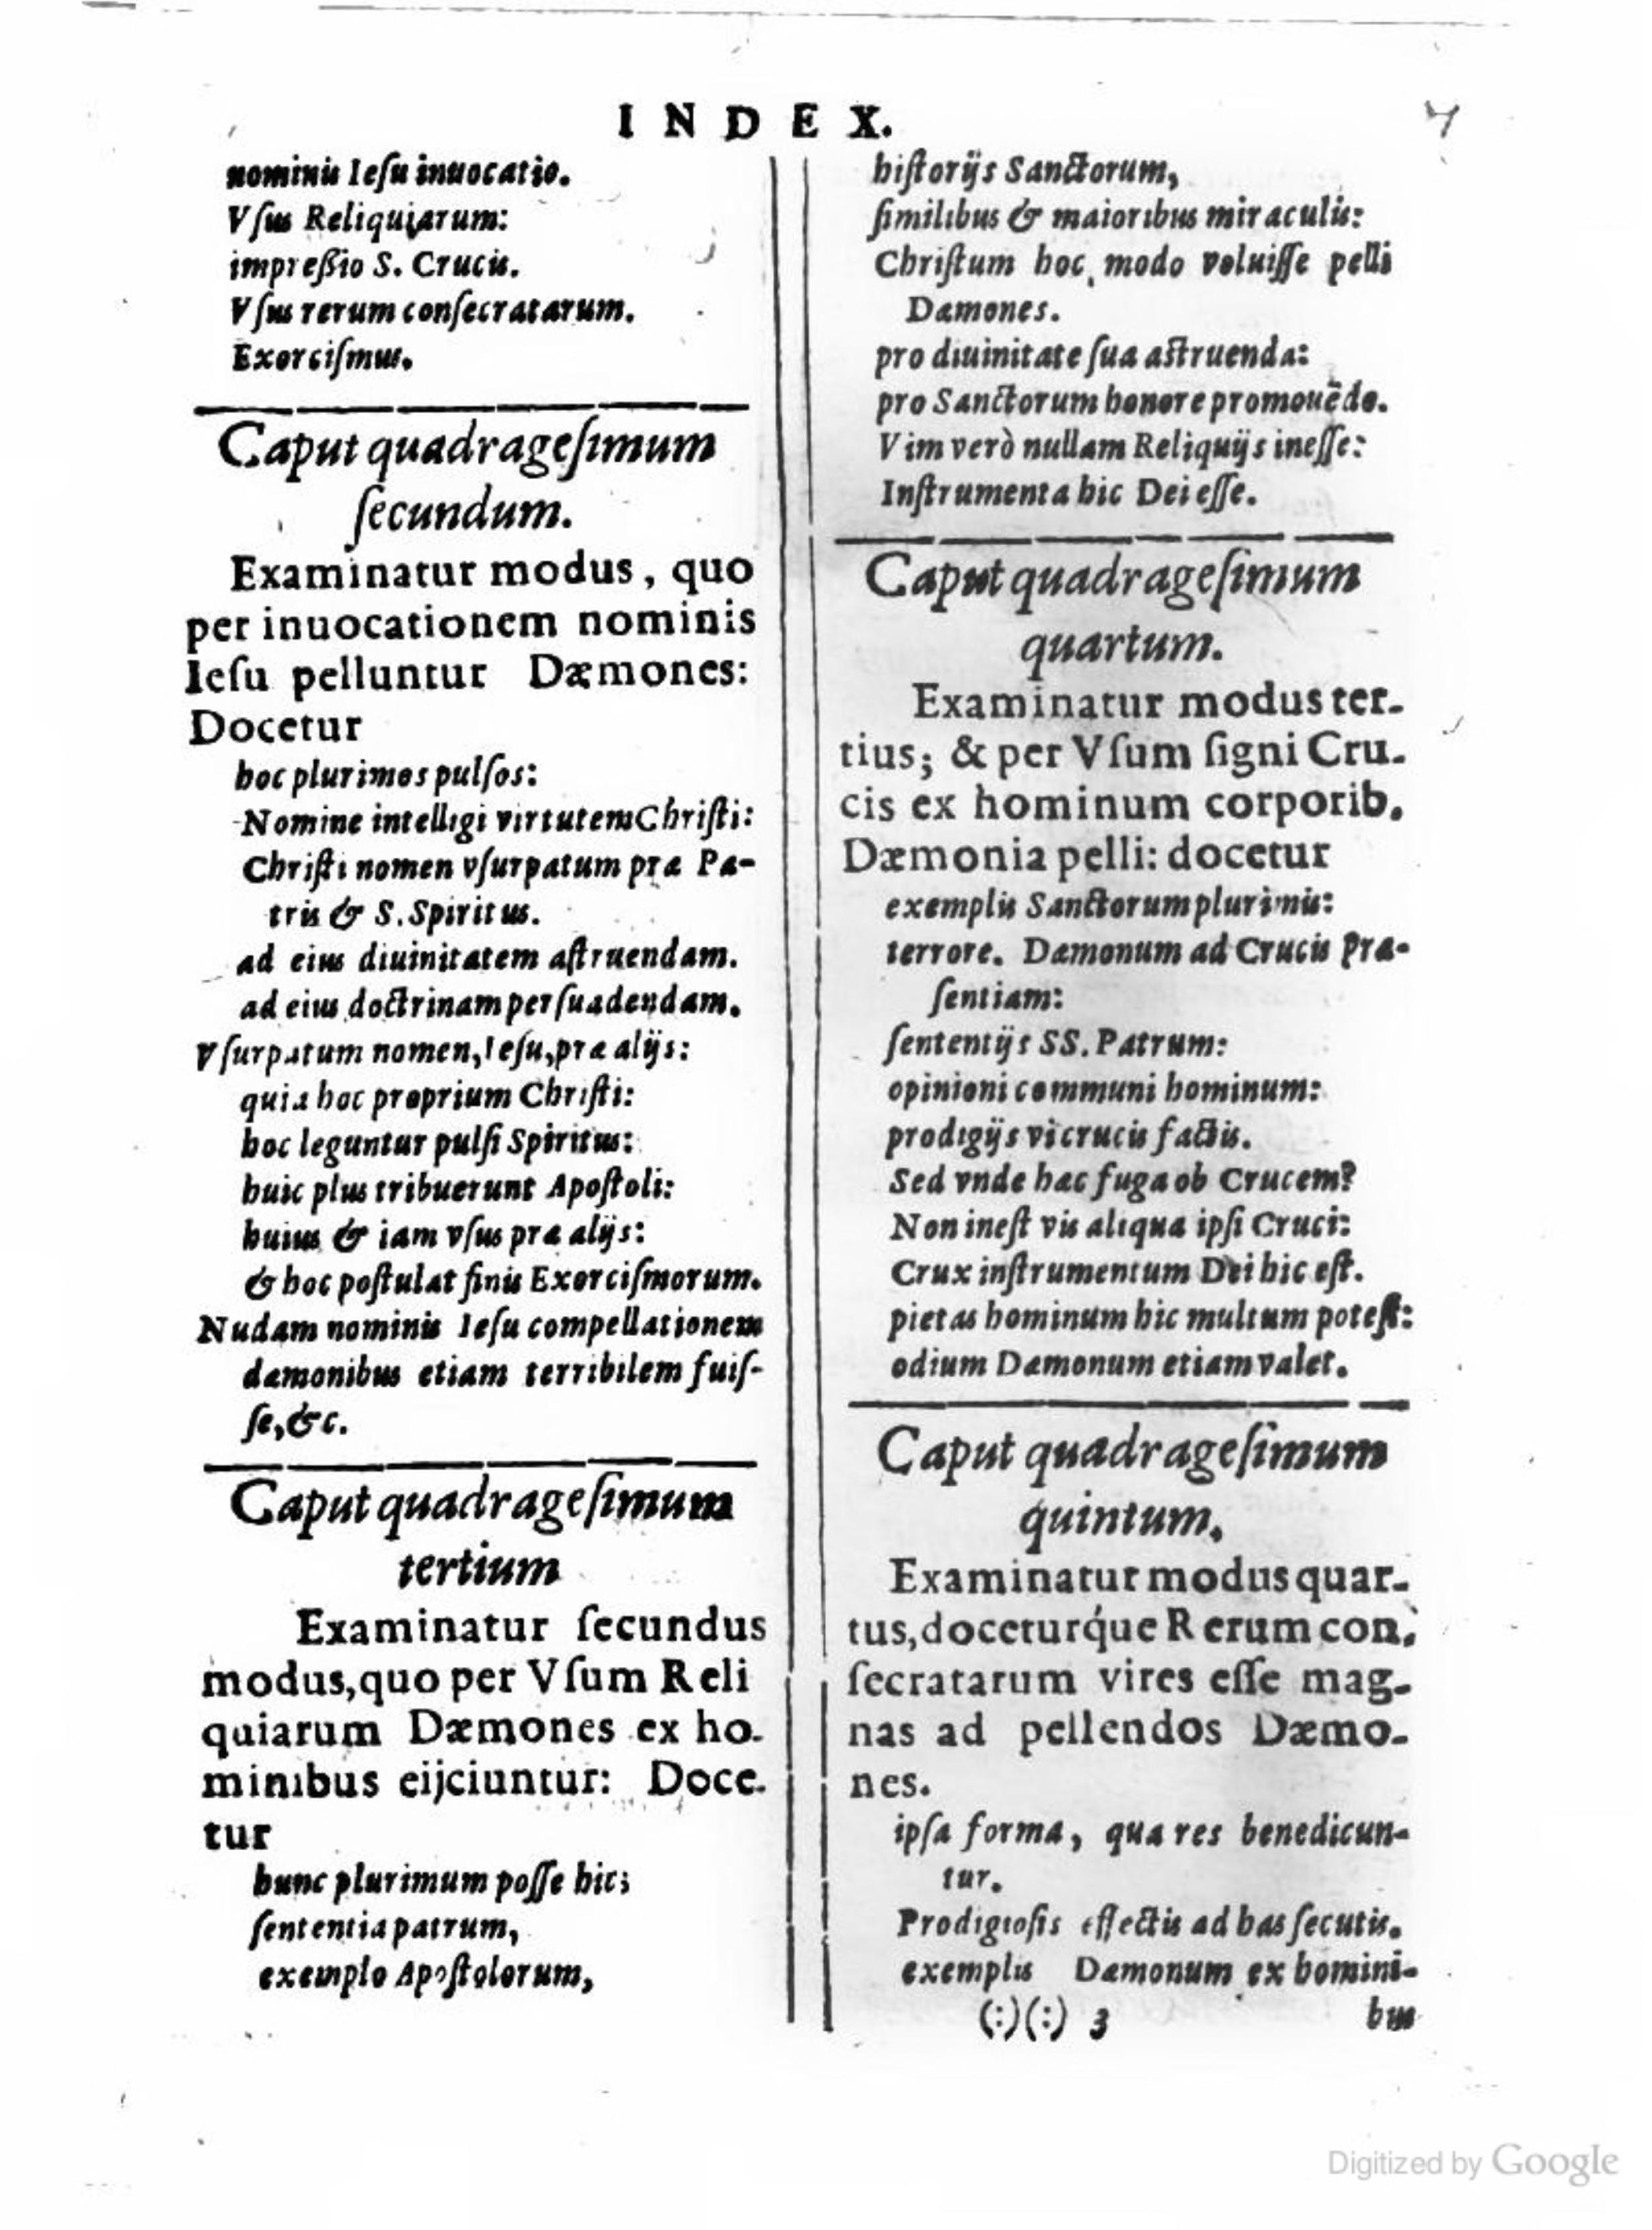 INDEX.
nominis Ieſu inuocatio.
Vſus Reliquiarum:
impreßio S. Crucis.
Vſus rerum conſecratarum.
Exorciſmus.
Caput quadrageſimum
ſecundum.
Examinatur modus, quo
per inuocationem nominis
Ieſu pelluntur Dæmones:
Docetur
hoc plurimos pulſos:
Nomine intelligi virtutem Chriſti:
Chriſti nomen vſurpatum præ Pa-
tris & S. Spiritus.
ad eius diuinitatem aſtruendam.
ad eius doctrinam perſuadendam.
Vſurpatum nomen, Ieſu, præ alijs:
quia hoc proprium Chriſti:
hoc leguntur pulſi Spiritus:
huic plus tribuerunt Apoſtoli:
huius & iam vſus præ alijs:
& hoc poſtulat finis Exorciſmorum.
Nudam nominis Ieſu compellationem
dæmonibus etiam terribilem fuiſ-
ſe, &c.
Caput quadrageſimum
tertium
Examinatur ſecundus
modus, quo per Vſum Reli
quiarum Dæmones ex ho-
minibus eijciuntur: Doce-
tur
hunc plurimum poſſe hic;
ſententia patrum,
exemplo Apoſtolorum,
hiſtorijs Sanctorum,
ſimilibus & maioribus miraculis:
Chriſtum hoc modo voluiſſe pelli
Dæmones.
pro diuinitate ſua aſtruenda:
pro Sanctorum honore promouēdo.
Vim verò nullam Reliquijs ineſſe:
Inſtrumenta hic Dei eſſe.
Caput quadrageſimum
quartum.
Examinatur modus ter-
tius; & per Vſum ſigni Cru-
cis ex hominum corporib.
Dæmonia pelli: docetur
exemplis Sanctorum plurimis:
terrore. Dæmonum ad Crucis præ-
ſentiam:
ſententijs SS. Patrum:
opinioni communi hominum:
prodigijs vi crucis factis.
Sed vnde hæc fuga ob Crucem?
Non ineſt vis aliqua ipſi Cruci:
Crux inſtrumentum Dei hic eſt.
pietas hominum hic multum poteſt:
odium Dæmonum etiam valet.
Caput quadrageſimum
quintum.
Examinatur modus quar-
tus, doceturq́ue Rerum con-
ſecratarum vires eſſe mag-
nas ad pellendos Dæmo-
nes.
ipſa forma, qua res benedicun-
tur.
Prodigioſis effectis ad has ſecutis.
exemplis Dæmonum ex homini-
(:)(:) 3 bus
Digitized by Google